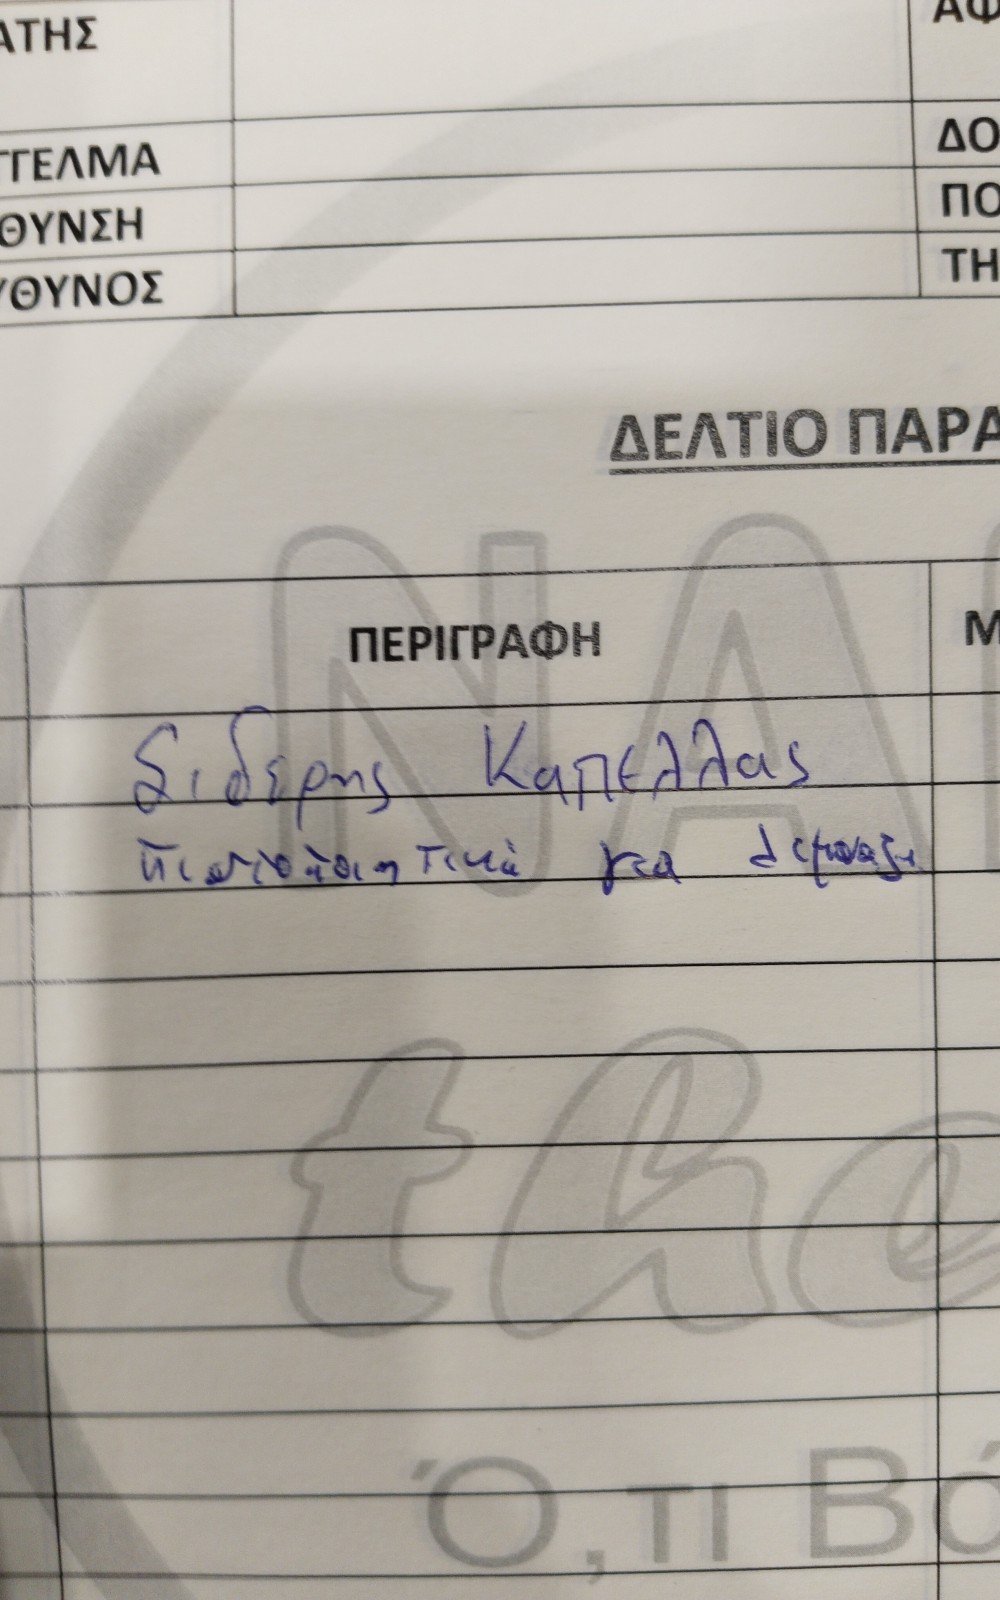 ΑΤΗΣ
ΑΦ
ΓΓΕΛΜΑ
ΔΟ
ΘΥΝΣΗ
ΠΟ
ΥΘΥΝΟΣ
ΤΗ
ΔΕΛΤΙΟ ΠΑΡΑ
ΠΕΡΙΓΡΑΦΗ
Μ
Σιδέρης Καπελλας
πιστοποιητικά για
NA
the
Ό,τι Βό